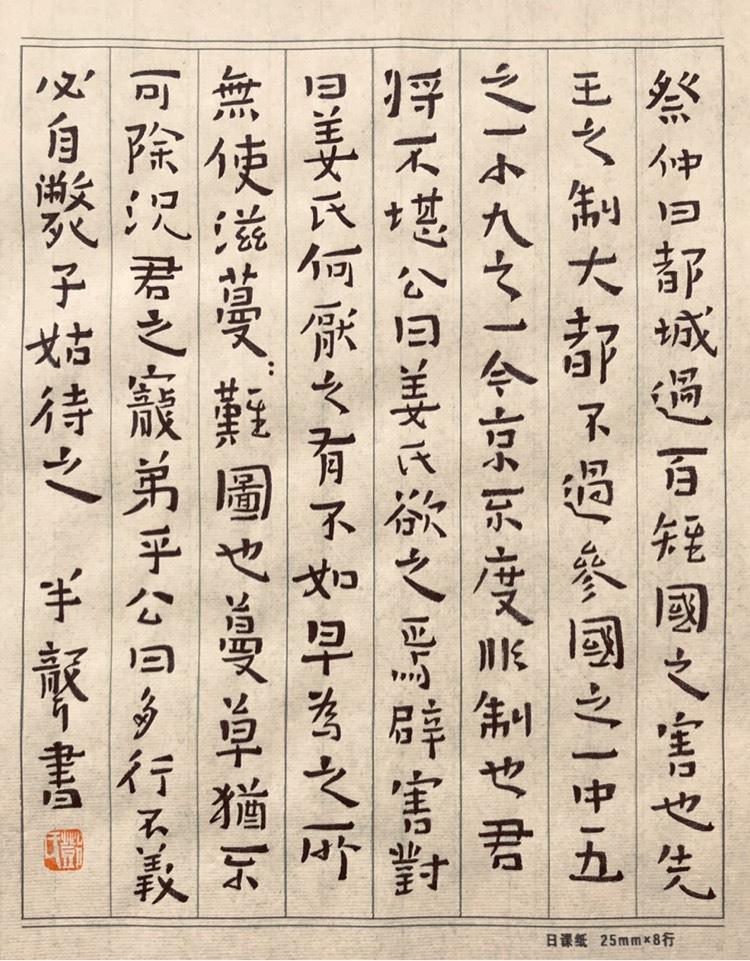 祭仲曰都城過百雉國之害也先
王之制大都不過參國之一中五
之一小九之一今京不度非制也君
將不堪公曰姜氏欲之焉辟害對
曰姜氏何厭之有不如早為之所
無使滋蔓:難圖也蔓草猶不
可除況君之寵弟乎公曰多行不義
必自斃子姑待之 半聾書
日课纸 25mm×8行